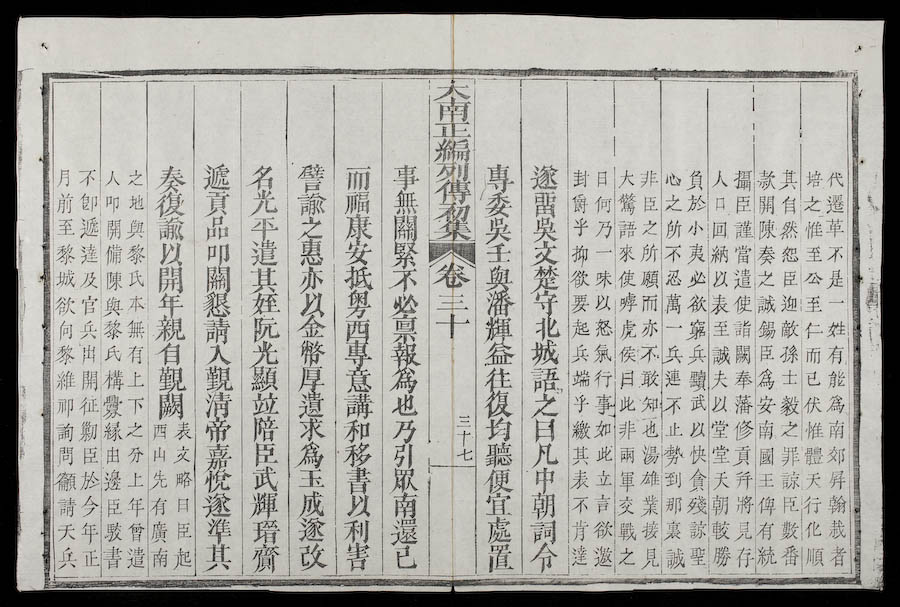 代遷革不是一姓有能爲南郊屛翰裁者
培之惟至公至仁而已伏惟體天行化順
其自然恕臣迎敵孫士毅之罪諒臣數番
款開陳奏之誠錫臣爲安南國王俾有統
攝臣謹當遣使詣闕奉藩修貢幷將見存
人口回納以表至誠夫以堂堂天朝較勝
負於小夷必欲窮兵黷武以快貪殘諒聖
心之所不忍萬一兵連不止勢到那裏誠
非臣之所願而亦不敢知也湯雄業接見
大驚語來使呼虎侯曰此非兩軍交戰之
日何乃一味以怒氣行事如此立言欲邀
封爵乎抑欲要起兵端乎繳其表不肯達
遂畱吳文楚守北城語之曰凡中朝詞令
專委吳壬與潘輝益往復均聽便宜處置
大南正編列傳初集 卷三十 三十七
事無關緊不必稟報爲也乃引眾南還已
而福康安抵粤西專意講和移書以利害
譬諭之惠亦以金幣厚遺求爲玉成遂改
名光平遣其姪阮光顯竝陪臣武輝瑨齎
遞貢品叩關懇請入覲清帝嘉悅遂準其
奏復諭以開年親自覲闕 表文略曰臣起
西山先有廣南
之地與黎氏本無有上下之分上年曾遣
人叩開備陳與黎氏構釁緣由邊臣駁書
不卽遞達及官兵出開征勦臣於今年正
月前至黎城欲向黎維祁詢問籲請天兵